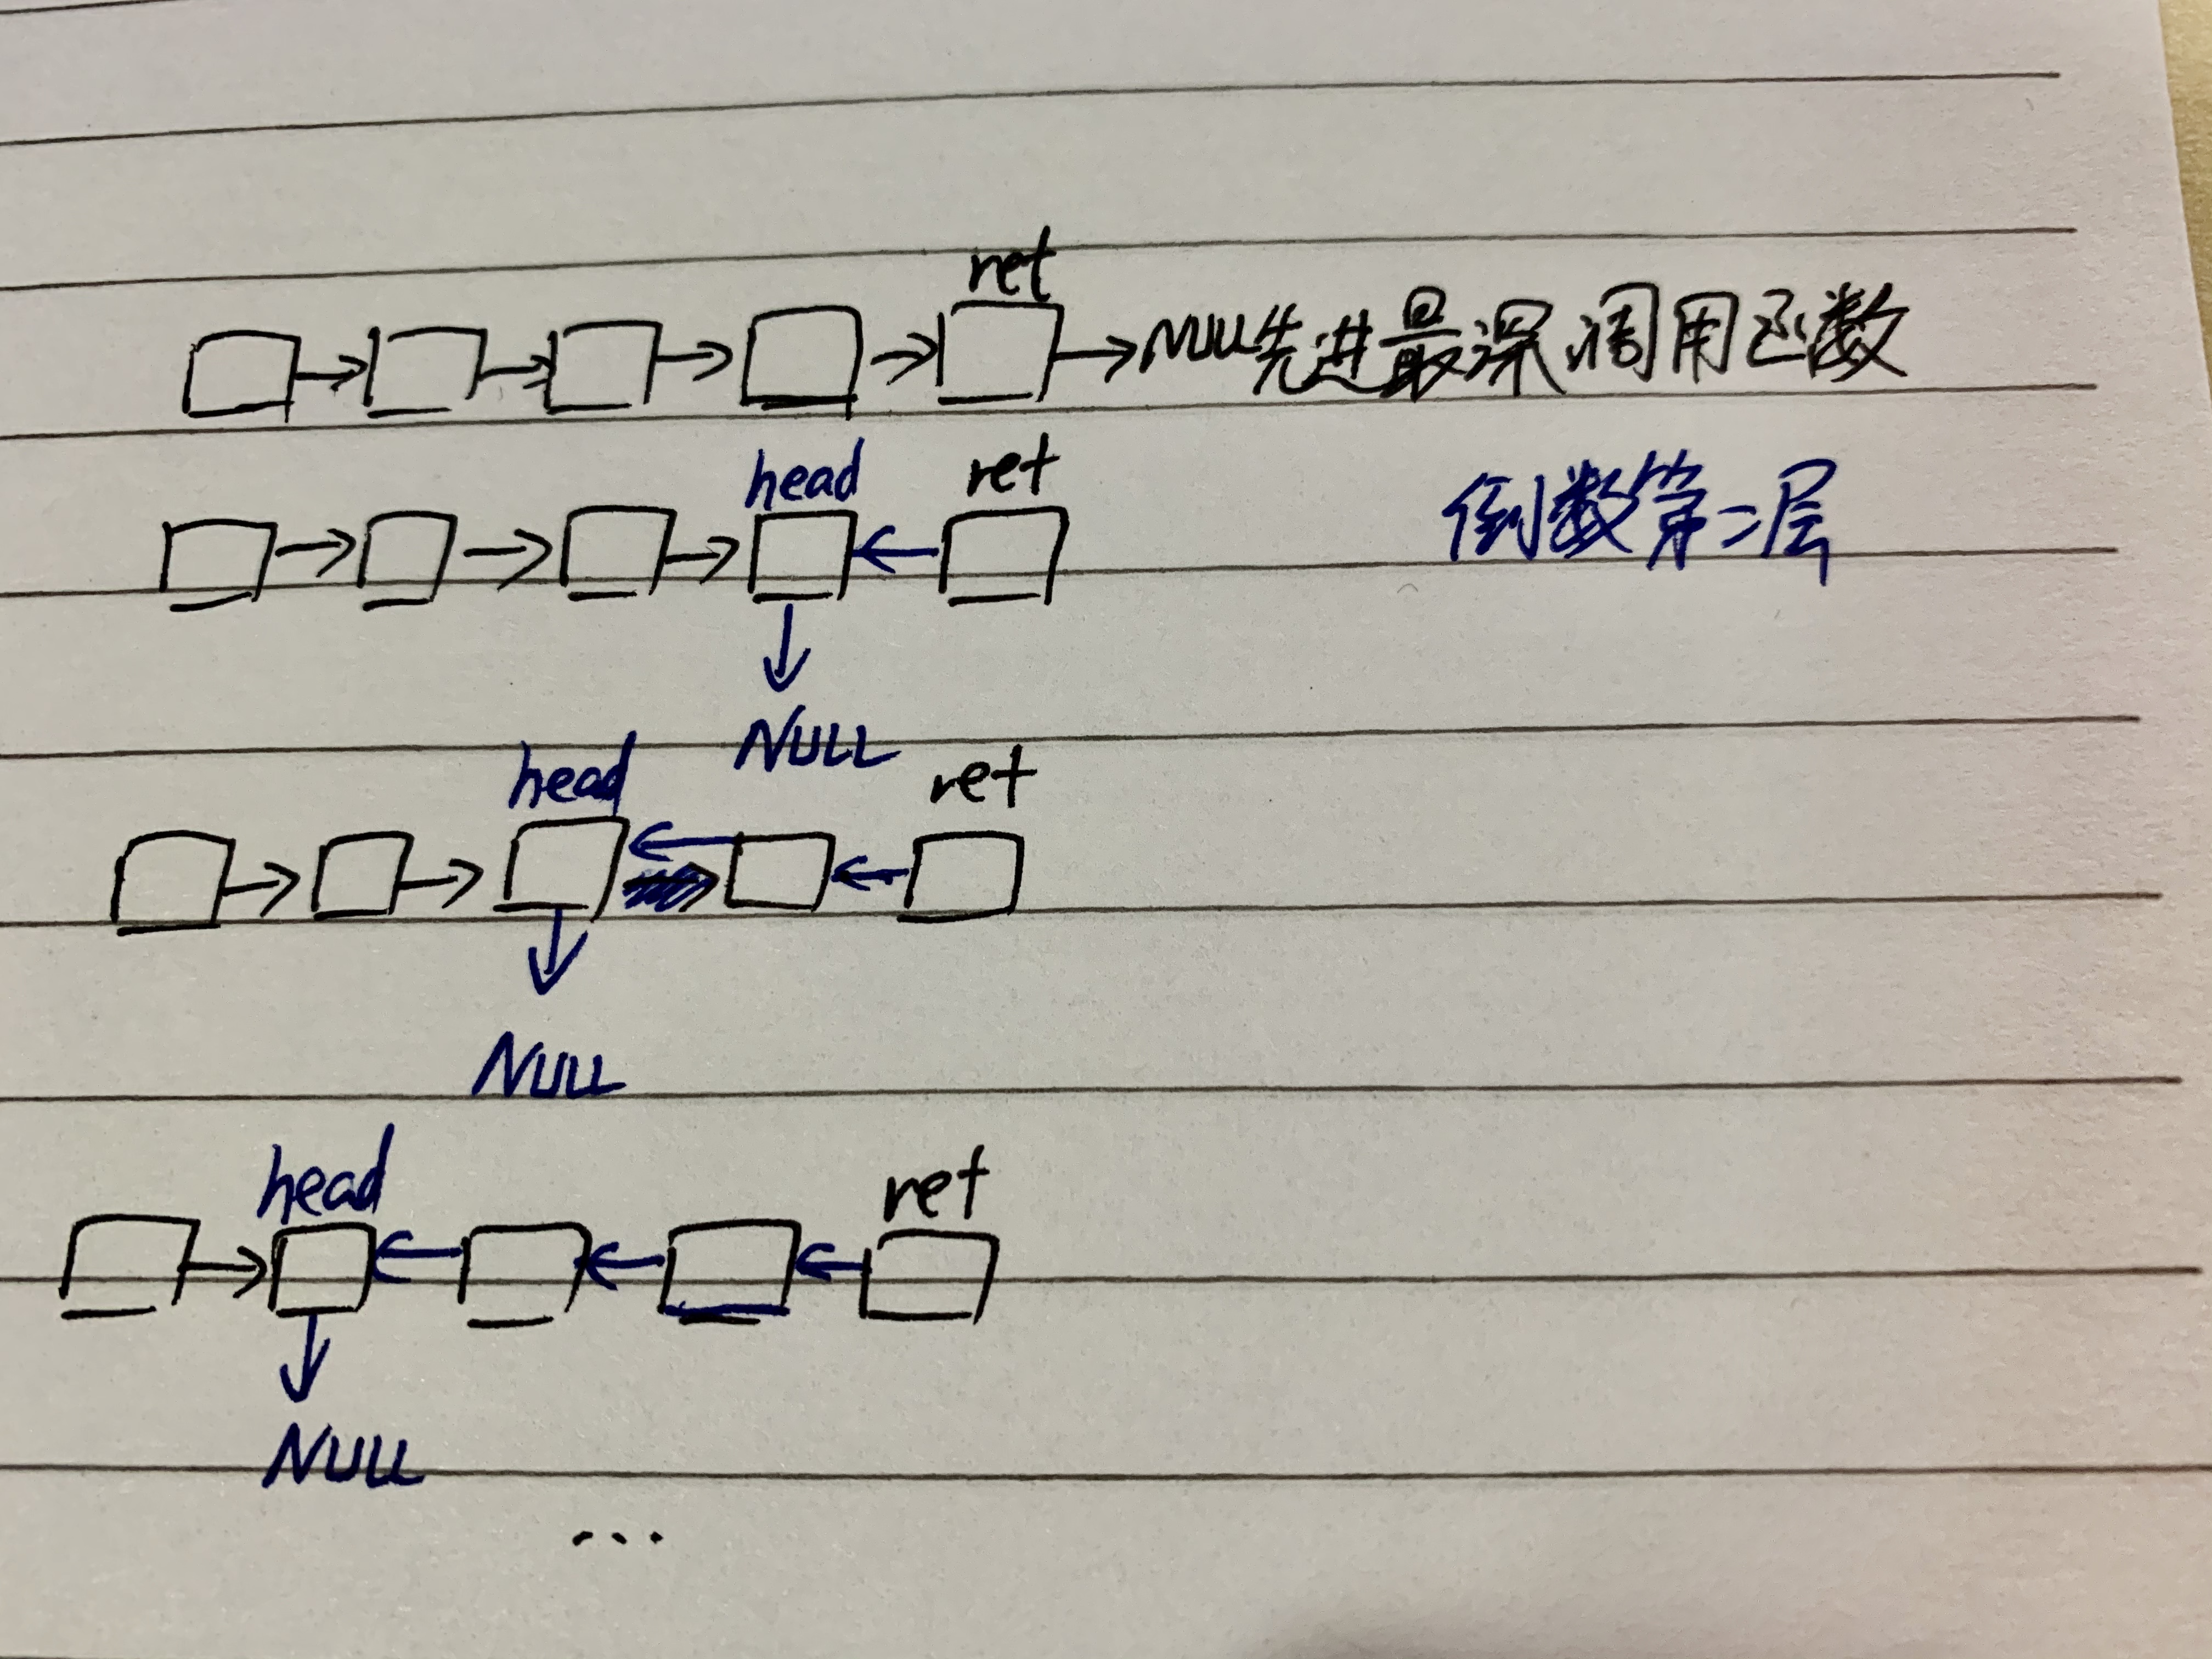 ret
NULL先进最深调用函数
head ret
倒数第二层
NULL
head ret
NULL
head ret
NULL
...